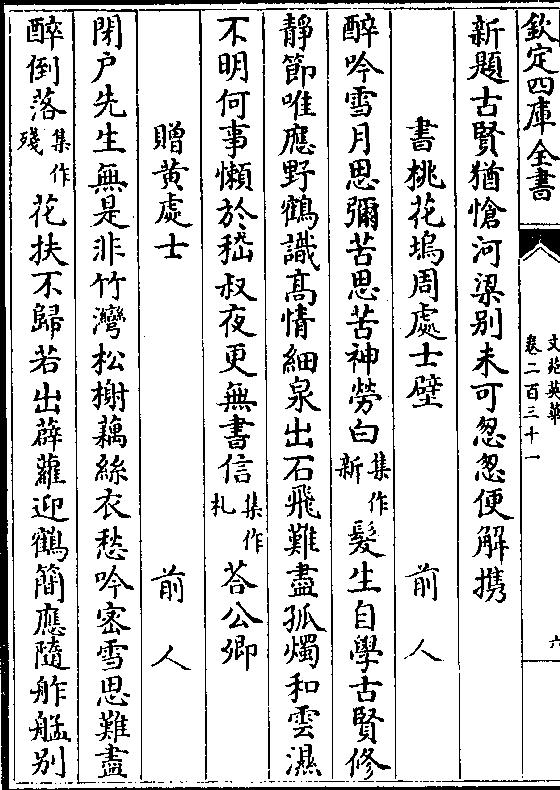 欽定四庫全書
文苑英華
卷二百三十一
六
新題古賢猶愴河梁别未可怱怱便解携
書桃花塢周處士壁 前人
醉吟雪月思彌苦思苦神勞白集作新髮生自學古賢修
靜節唯應野鶴識高情細泉出石飛難盡孤燭和雲濕
不明何事懶於嵇叔夜更無書信集作札荅公卿
贈黄處士 前人
閉户先生無是非竹灣松樹藕絲衣愁吟宻雪思難盡
醉倒落集作殘花扶不歸若出薜蘿迎鶴簡應隨舴艋别